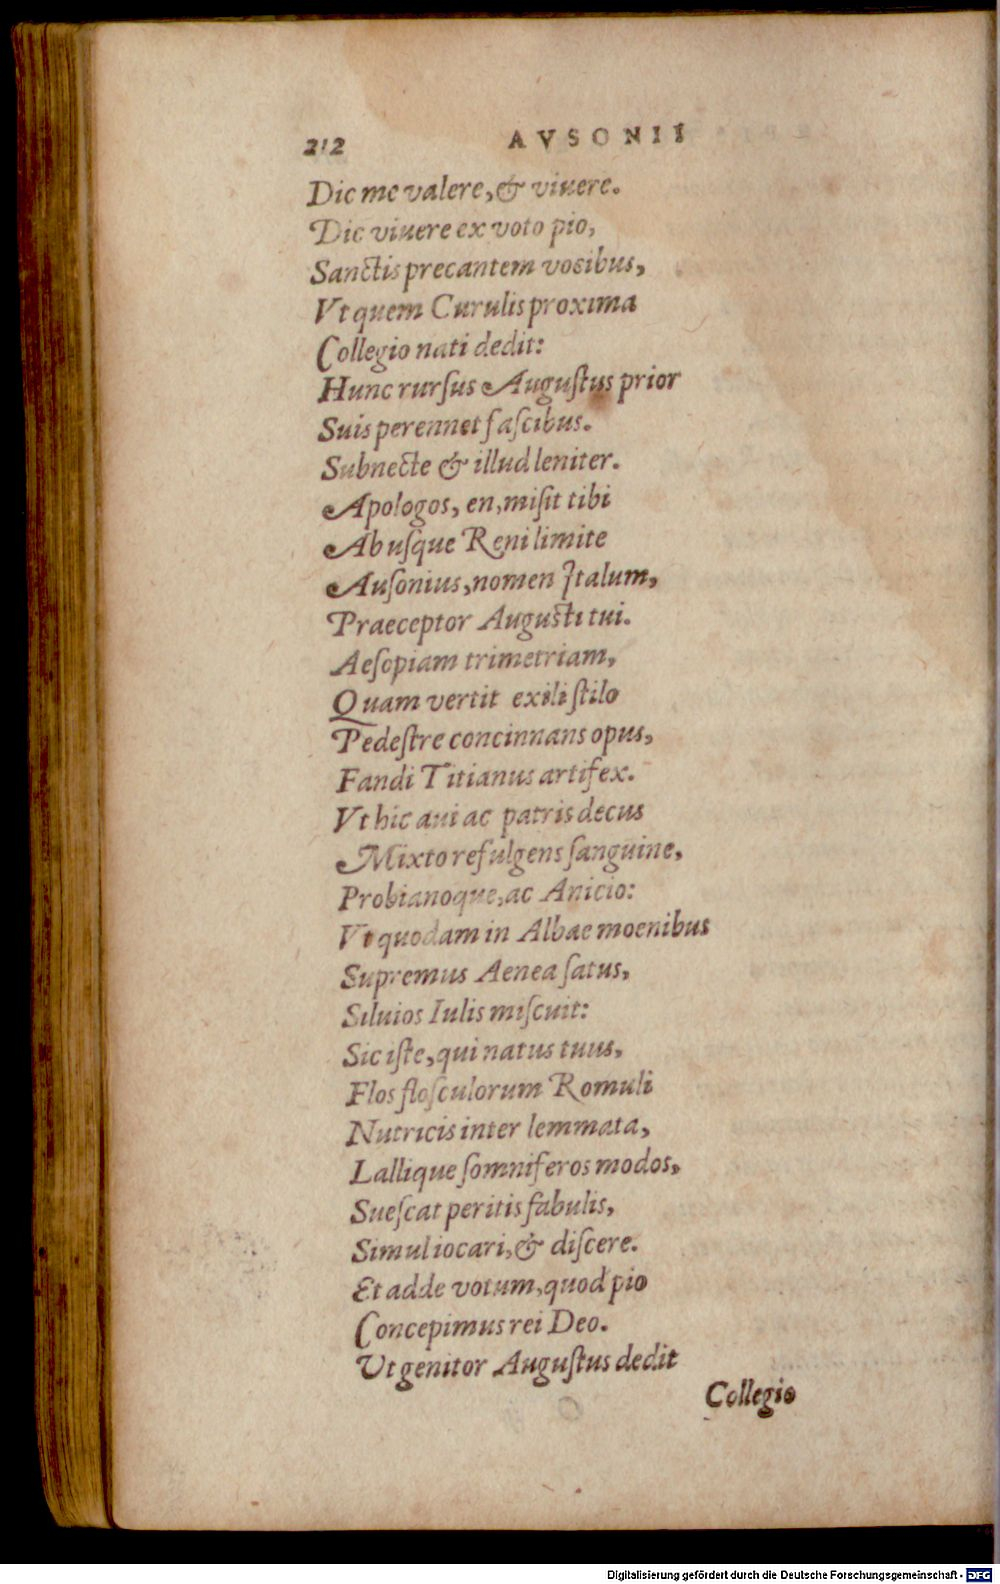 212 AVSONII
Dic me valere, & viuere.
Dic viuere ex voto pio,
Sanctis precantem vocibus,
Vt quem Curulis proxima
Collegio nati dedit:
Hunc rurſus Auguſtus prior
Suis perennet faſcibus.
Subnecte & illud leniter.
Apologos, en, miſit tibi
Ab uſque Reni limite
Auſonius, nomen Italum,
Praeceptor Augusti tui.
Aeſopiam trimetriam,
Quam vertit exili ſtilo
Pedeſtre concinnans opus,
Fandi Titianus artifex.
Vt hic aui ac patris decus
Mixto refulgens ſanguine,
Probianoque, ac Anicio:
Vt quodam in Albae moenibus
Supremus Aenea ſatus,
Siluios Iulis miſcuit:
Sic iſte, qui natus tuus,
Flos floſculorum Romuli
Nutricis inter lemmata,
Lallique ſomniferos modos,
Sueſcat peritis fabulis,
Simul iocari, & diſcere.
Et adde votum, quod pio
Concepimus rei Deo.
Vt genitor Auguſtus dedit
Collegio
Digitalisierung gefördert durch die Deutsche Forschungsgemeinschaft - DFG